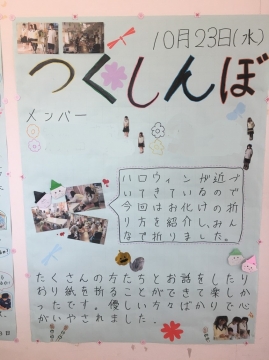 10月23日(水)
つくしんぼ
メンバー
ハロウィンが近づ
いてきているので
今回はお化けの折
り方を紹介し、みん
なで折りました。
たくさんの方たちとお話をしたり
おり紙を折ることができて楽しか
ったです。優しい方々ばかりで心
がいやされました。